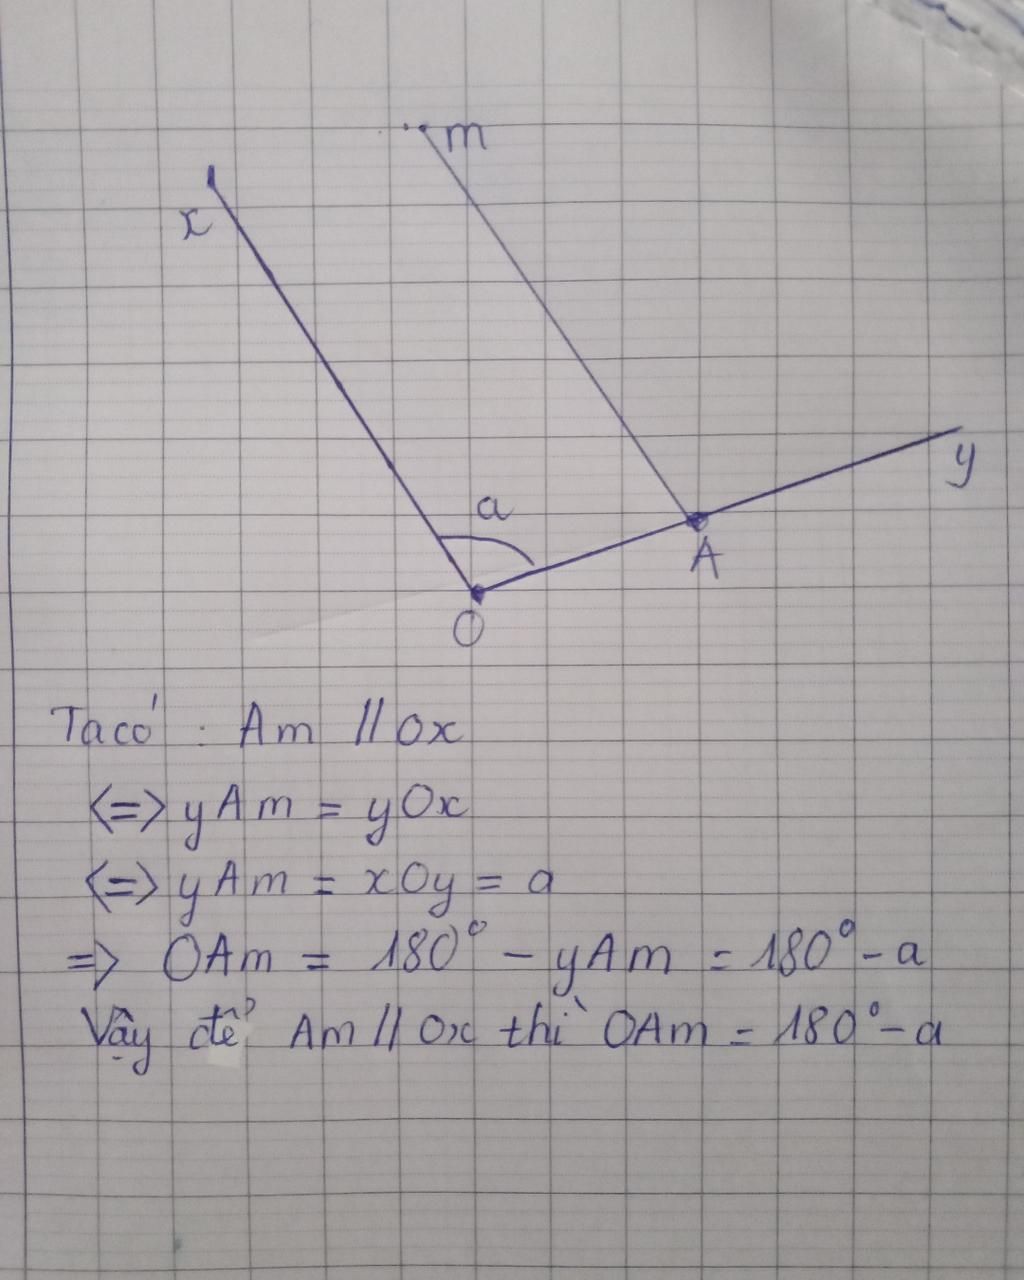 m
x
y
a
A
O
Ta có : Am // Ox
<=> yAm = yOx
<=> yAm = xOy = a
=> OAm = 180° - yAm = 180° - a
Vậy để Am // Ox thì OAm = 180° - a